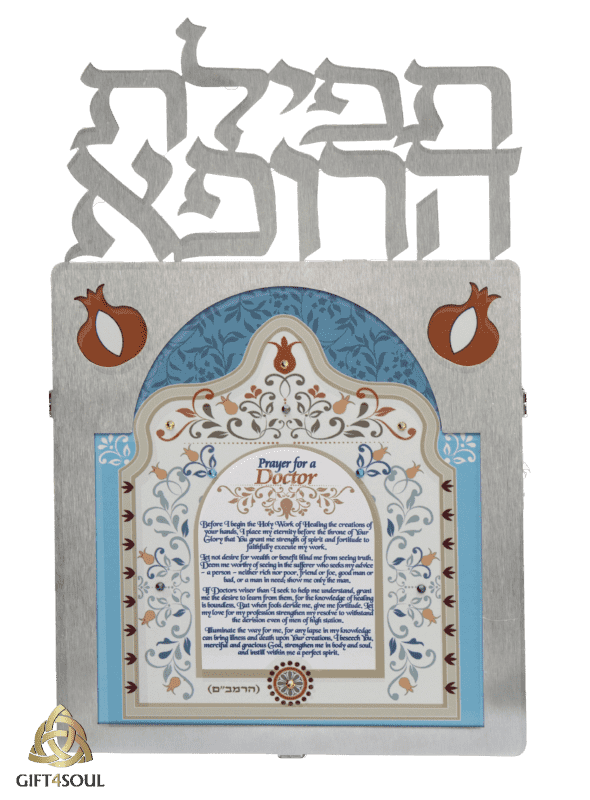 תפילת
הרופא
Prayer for a
Doctor
Before I begin the Holy Work of Healing the creations of
your hands, I place my eternity before the throne of Your
Glory that You grant me strength of spirit and fortitude to
faithfully execute my work.
Let not desire for wealth or benefit blind me from seeing truth.
Deem me worthy of seeing in the sufferer who seeks my advice
– a person – neither rich nor poor, friend or foe, good man or
bad, or a man in need; show me only the man.
If Doctors wiser than I seek to help me understand, grant
me the desire to learn from them, for the knowledge of healing
is boundless. But when fools deride me, give me fortitude. Let
my love for my profession strengthen my resolve to withstand
the derision even of men of high station.
Illuminate the way for me, for any lapse in my knowledge
can bring illness and death upon Your creations. I beseech You,
merciful and gracious God, strengthen me in body and soul,
and instill within me a perfect spirit.
(הרמב"ם)
GIFT4SOUL